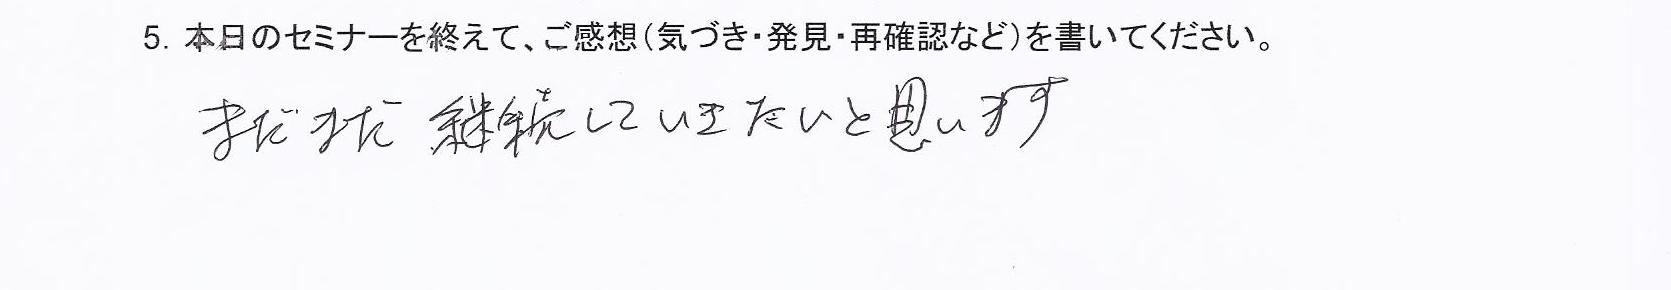 5. 本日のセミナーを終えて、ご感想（気づき・発見・再確認など）を書いてください。
まだまだ 継続していきたいと思います